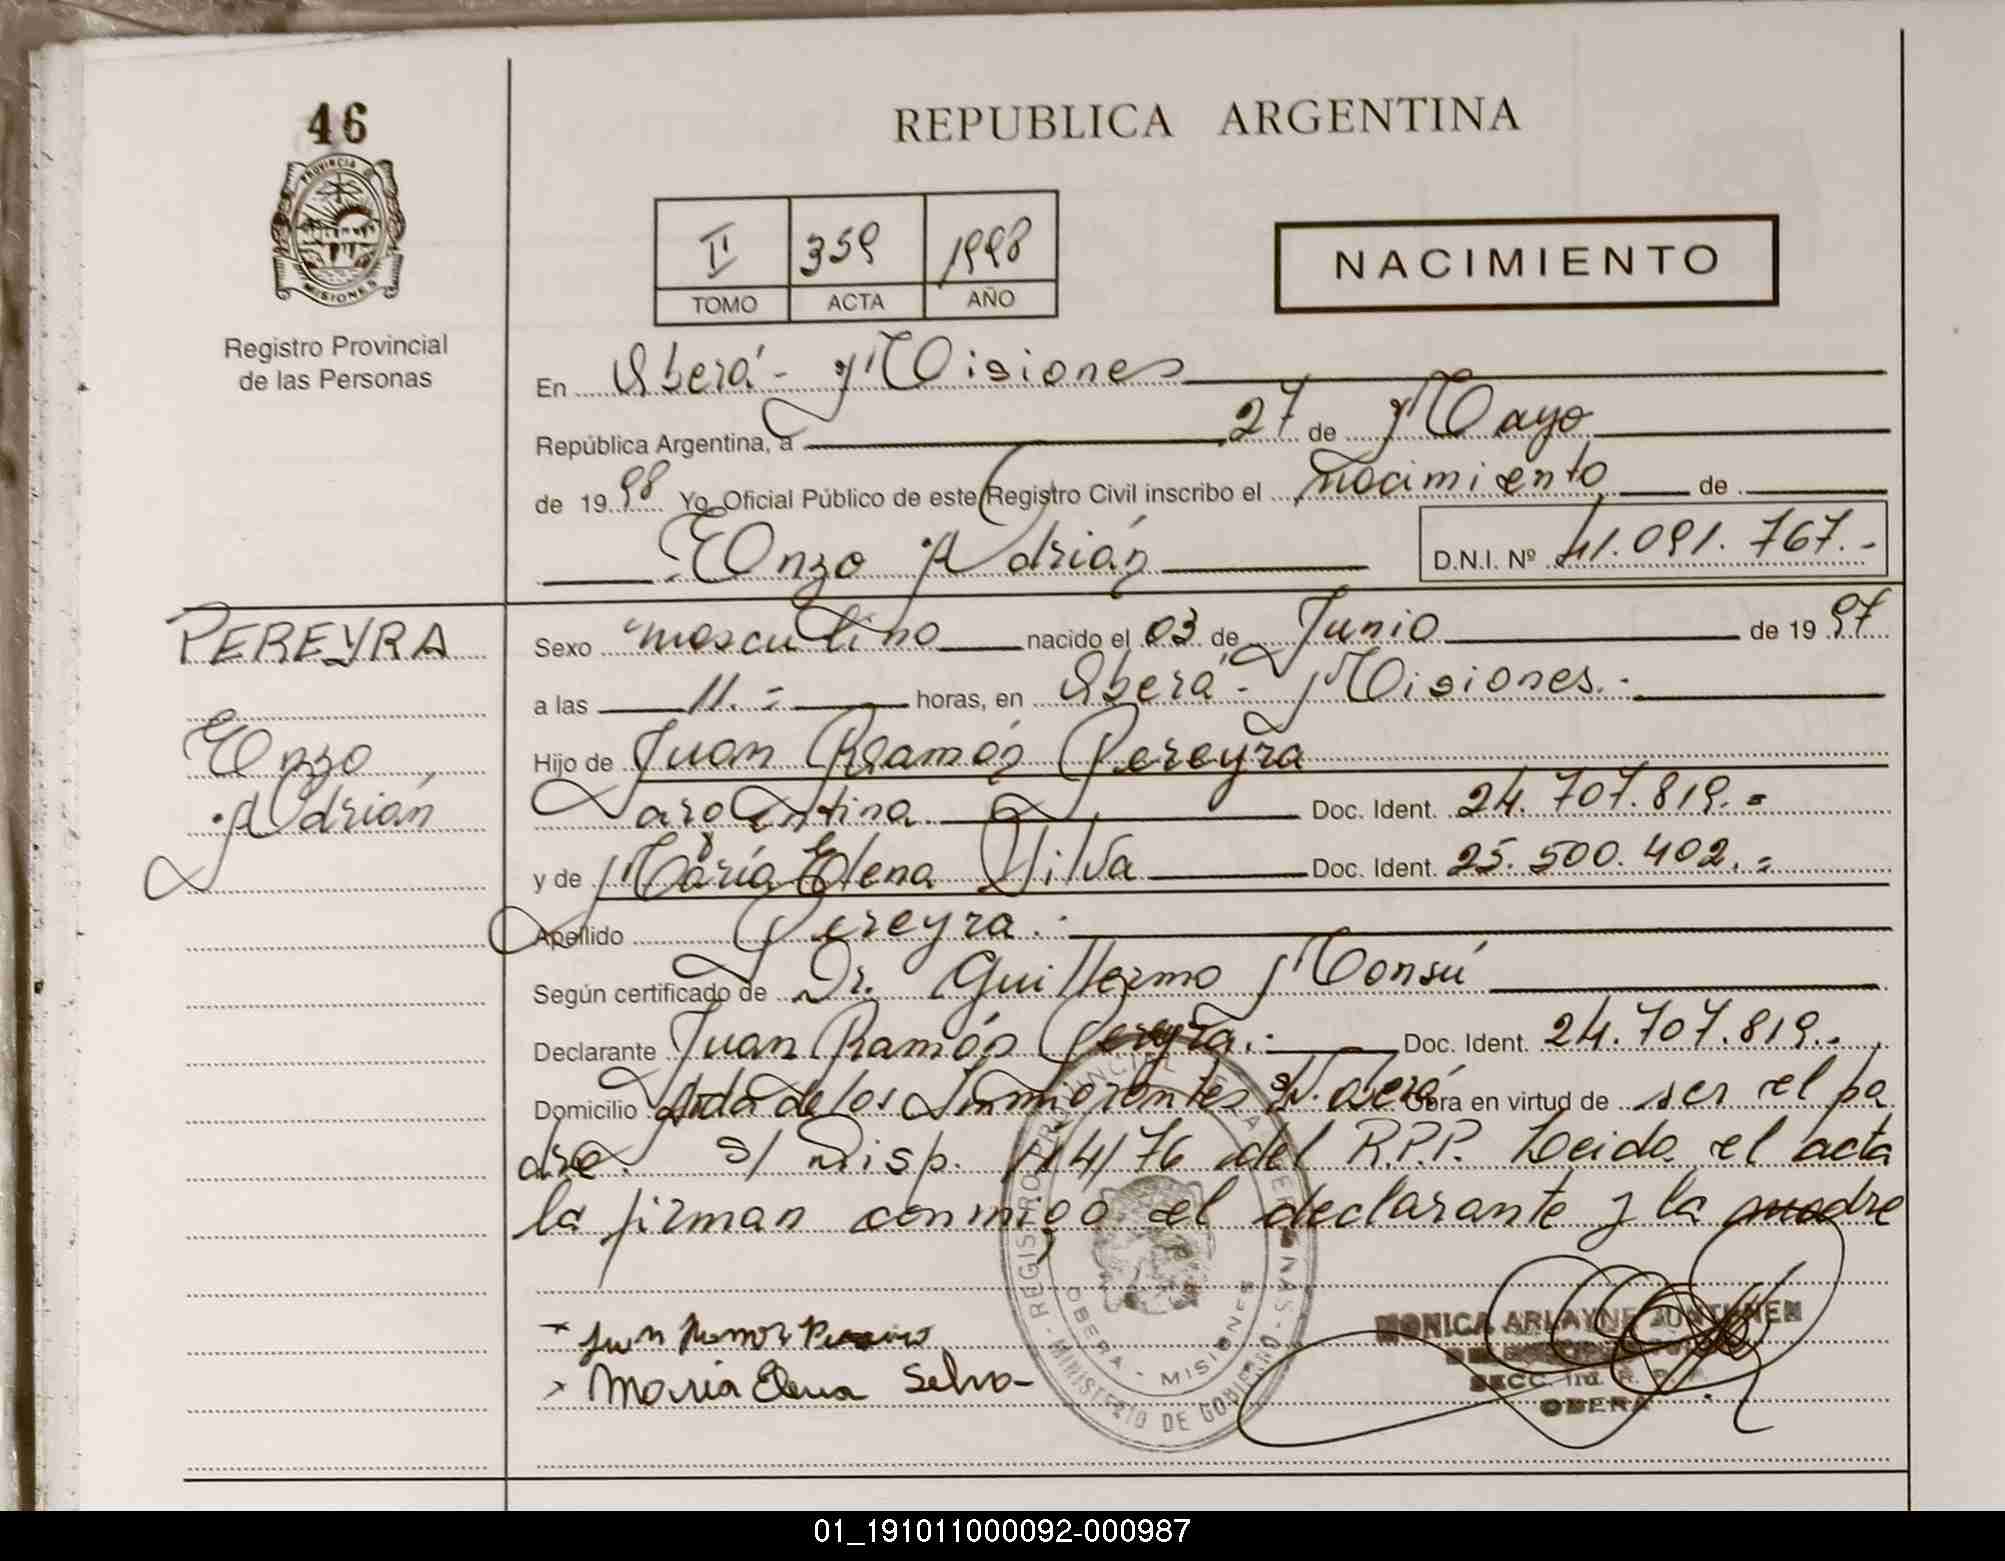 46
PROVINCIA DE
MISIONES
Registro Provincial
de las Personas
REPUBLICA ARGENTINA
II 359 1998
TOMO ACTA AÑO
NACIMIENTO
En Oberá - Misiones
República Argentina, a 27 de Mayo
de 1998 Yo, Oficial Público de este Registro Civil inscribo el nacimiento de
Enzo Adrián D.N.I. Nº 41.091.767.-
PEREYRA
Enzo
Adrián
Sexo masculino nacido el 03 de Junio de 1997
a las 11.= horas, en Oberá - Misiones.-
Hijo de Juan Ramón Pereyra
argentina Doc. Ident. 24.707.819.=
y de María Elena Silva Doc. Ident. 25.500.402.=
Apellido Pereyra.-
Según certificado de Dr. Guillermo Monsú
Declarante Juan Ramón Pereyra.- Doc. Ident. 24.707.819.-
Domicilio Avda de los Inmigrantes s/N. Oberá Obra en virtud de ser el pa
dre. s/ Disp. 114/76 del R.P.P. Leida el acta
la firman conmigo el declarante y la madre
REGISTRO PROVINCIAL DE LAS PERSONAS - MINISTERIO DE GOBIERNO
OBERA - MISIONES
Maria Elena Selva
MONICA ARLAYNE
SECC.
OBERA
01_191011000092-000987